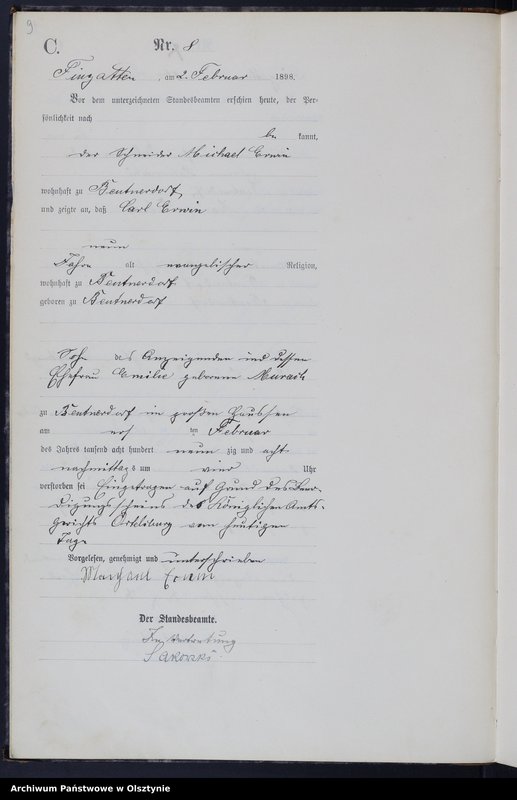 9
C.
Nr. 8
Finzatten, am 2. Februar 1898.
Vor dem unterzeichneten Standesbeamten erschien heute, der Per-
sönlichkeit nach
be kannt,
der Schneider Michael Erwin
wohnhaft zu Beutnerdorf
und zeigte an, daß Carl Erwin
neun
Jahre alt evangelischer Religion,
wohnhaft zu Beutnerdorf
geboren zu Beutnerdorf
Sohn des Anzeigenden und dessen
Ehefrau Emilie geborene
zu Beutnerdorf im großen
am ten Februar
des Jahres tausend acht hundert neun zig und acht
nachmittags um vier Uhr
verstorben sei Eingetragen auf Grund des Beer-
digungsscheins des Königlichen Amts-
gerichts Ortelsburg vom heutigen
Tage
Vorgelesen, genehmigt und unterschrieben
Der Standesbeamte.
In Vertretung
Archiwum Państwowe w Olsztynie